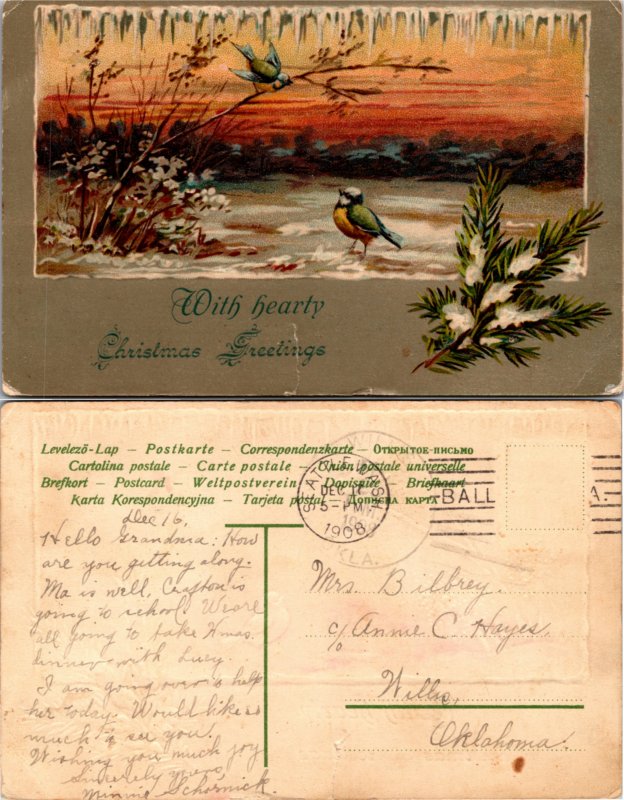 With hearty
Christmas Greetings
Levelező-Lap – Postkarte – Correspondenzkarte – Открытое письмо
Cartolina postale – Carte postale – Union postale universelle
Brefkort – Postcard – Weltpostverein – Dopisnice – Briefkaart
Karta Korespondencyjna – Tarjeta postal – Дописна карта
SEATTLE WASH.
DEC 17
5-PM
1908
OKLA.
BALL A.
Dec 16,
Hello Grandma: How
are you getting along.
Ma is well, Crafton is
going to school. We are
all going to take Xmas
dinner with Lucy.
I am going over & help
her today. Would like so
much to see you.
Wishing you much joy
Sincerely yours,
Minnie Schornick.
Mrs. Bilbrey.
c/o Annie C. Hayes,
Willis,
Oklahoma.